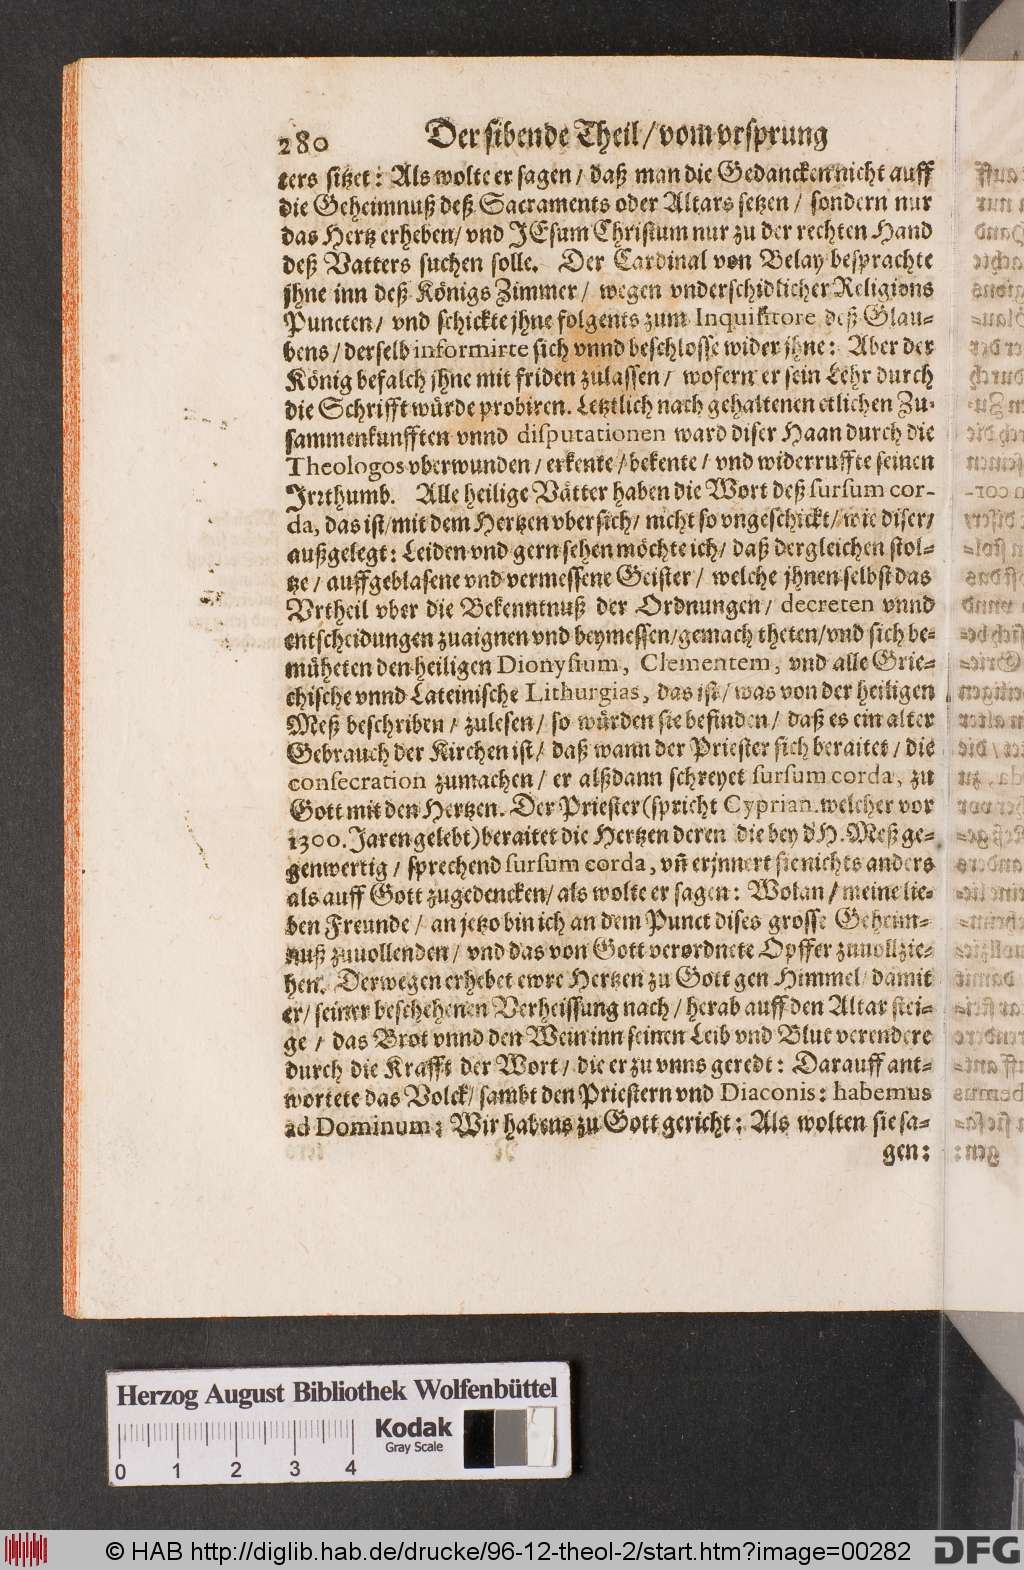 280 Der sibende Theil / vom vrsprung
ters sitzet: Als wolte er sagen / daß man die Gedancken nicht auff
die Geheimnuß deß Sacraments oder Altars setzen / sondern nur
das Hertz erheben / vnd JEsum Christum nur zu der rechten Hand
deß Vatters suchen solle. Der Cardinal von Belay besprachte
jhne inn deß Königs Zimmer / wegen vnderschidlicher Religions
Puncten / vnd schickte jhne folgents zum Inquisitore deß Glau-
bens / derselb informirte sich vnnd beschlosse wider jhne: Aber der
König befalch jhne mit friden zulassen / wofern er sein Lehr durch
die Schrifft würde probiren. Letztlich nach gehaltenen etlichen Zu-
sammenkunfften vnnd disputationen ward diser Haan durch die
Theologos vberwunden / erkente / bekente / vnd widerruffte seinen
Jrrthumb. Alle heilige Vätter haben die Wort deß sursum cor-
da, das ist / mit dem Hertzen vber sich / nicht so vngeschickt / wie diser /
außgelegt: Leiden vnd gern sehen möchte ich / daß dergleichen stol-
tze / auffgeblasene vnd vermessene Geister / welche jhnen selbst das
Vrtheil vber die Bekenntnuß der Ordnungen / decreten vnnd
entscheidungen zuaignen vnd beymessen / gemach theten / vnd sich be-
müheten den heiligen Dionysium, Clementem, vnd alle Grie-
chische vnnd Lateinische Lithurgias, das ist / was von der heiligen
Meß beschriben / zulesen / so würden sie befinden / daß es ein alter
Gebrauch der Kirchen ist / daß wann der Priester sich beraitet / die
consecration zumachen / er alßdann schreyet sursum corda, zu
Gott mit den Hertzen. Der Priester (spricht Cyprian. welcher vor
1300. Jaren gelebt) beraitet die Hertzen deren die bey d' H. Meß ge-
genwertig / sprechend sursum corda, vñ erjnnert sie nichts anders
als auff Gott zugedencken / als wolte er sagen: Wolan / meine lie-
ben Freunde / an jetzo bin ich an dem Punct dises grosse Geheim-
nuß zuuollenden / vnd das von Gott verordnete Opffer zuuollzie-
hen. Derwegen erhebet ewre Hertzen zu Gott gen Himmel / damit
er / seiner beschehenen Verheissung nach / herab auff den Altar stei-
ge / das Brot vnnd den Wein inn seinen Leib vnd Blut verendere
durch die Krafft der Wort / die er zu vnns geredt: Darauff ant-
wortete das Volck / sambt den Priestern vnd Diaconis: habemus
ad Dominum: Wir habens zu Gott gericht: Als wolten sie sa-
gen:
Herzog August Bibliothek Wolfenbüttel
Kodak
Gray Scale
0 1 2 3 4
© HAB http://diglib.hab.de/drucke/96-12-theol-2/start.htm?image=00282
DFG